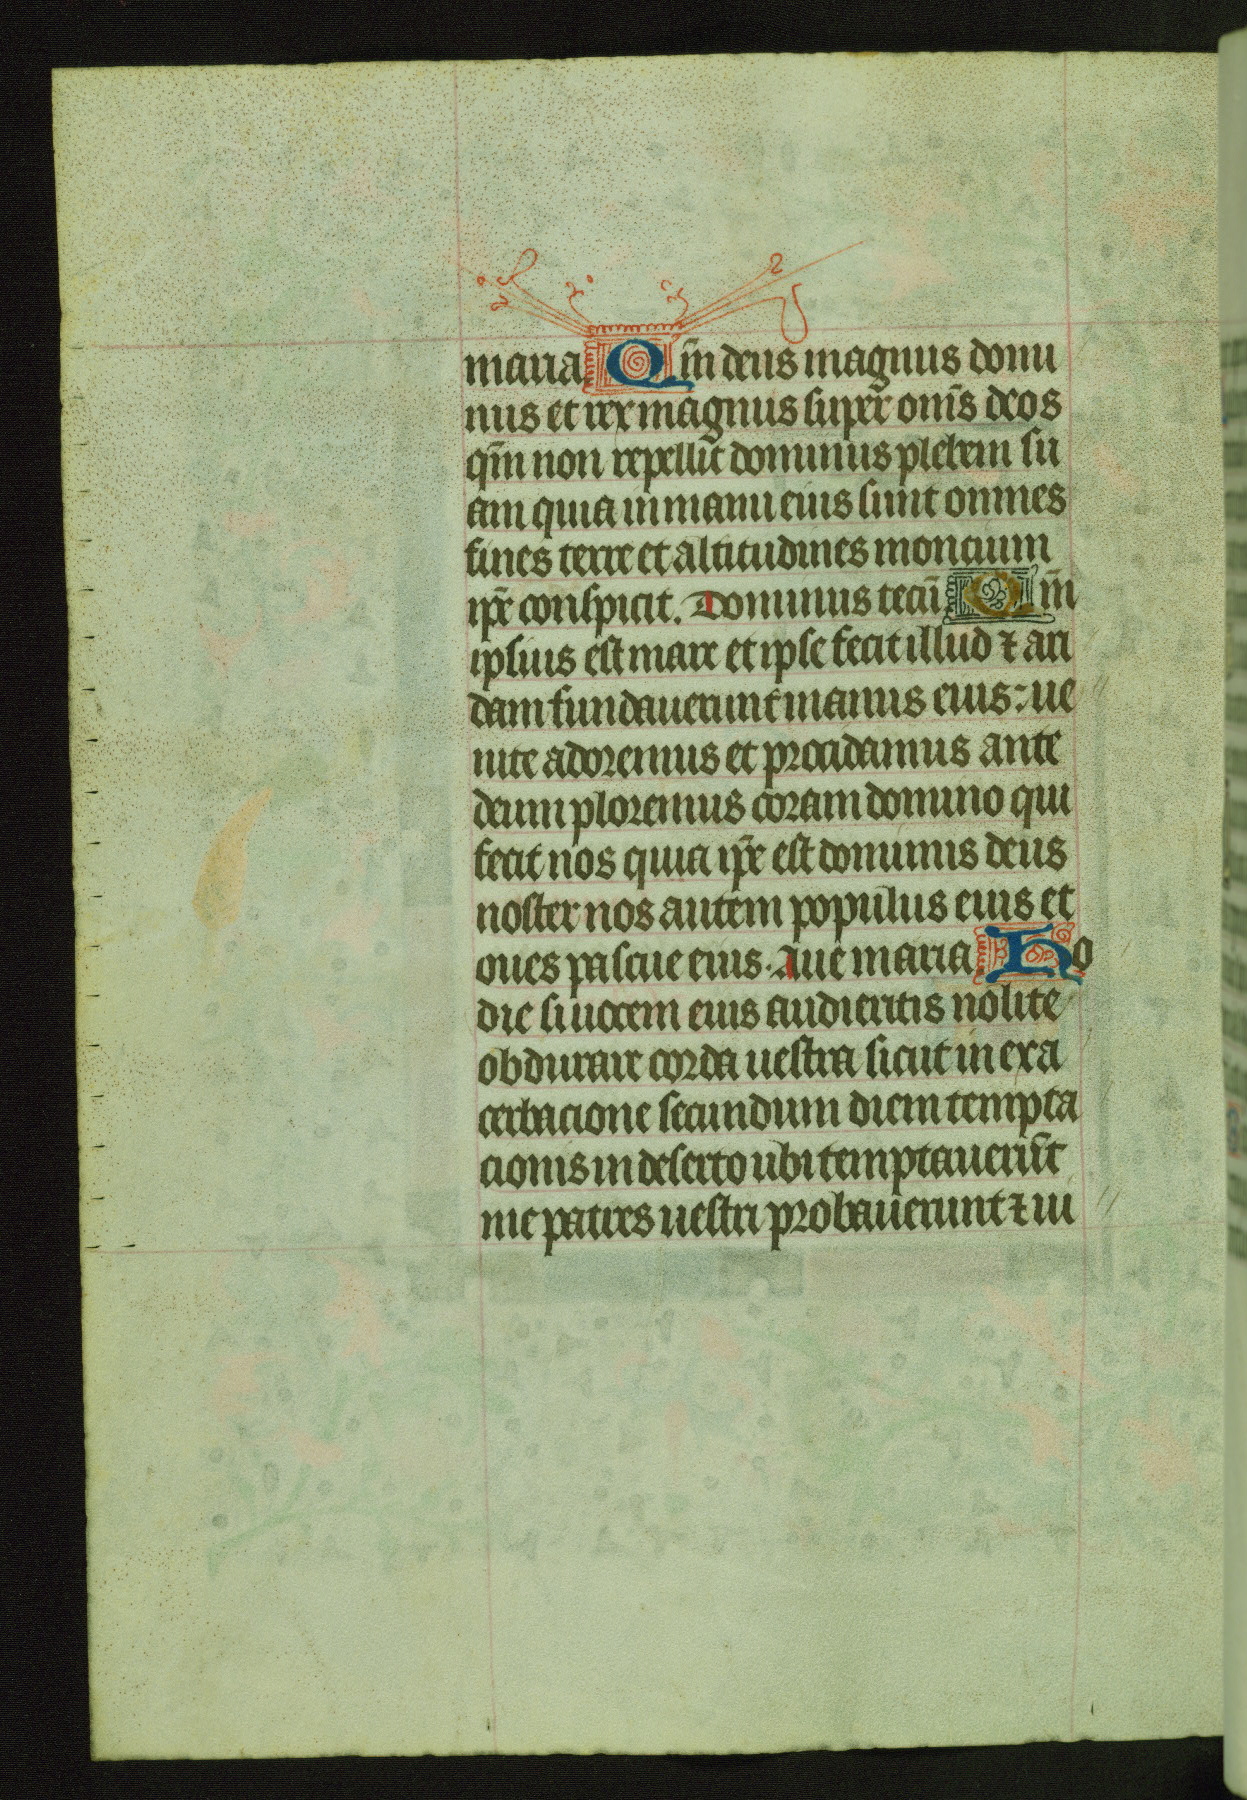 maria Qm̄ deus magnus domi
nus et rex magnus super̄ om̄s deos
qm̄ non repellit dominus plebem su
am quia in manu eius sunt omnes
fines terre et altitudines moncium
ip̄e conspicit. Dominus tecū Qm̄
ipsius est mare et ipse fecit illud ⁊ ari
dam fundauerunt manus eius: ue
nite adoremus et procidamus ante
deum ploremus coram domino qui
fecit nos quia ip̄e est dominus deus
noster nos autem populus eius et
oues pascue eius. Aue maria Ho
die si uocem eius audieritis nolite
obdurare corda uestra sicut in exa
cerbacione secundum diem tempta
cionis in deserto ubi temptauerūt
me patres uestri probauerunt ⁊ ui